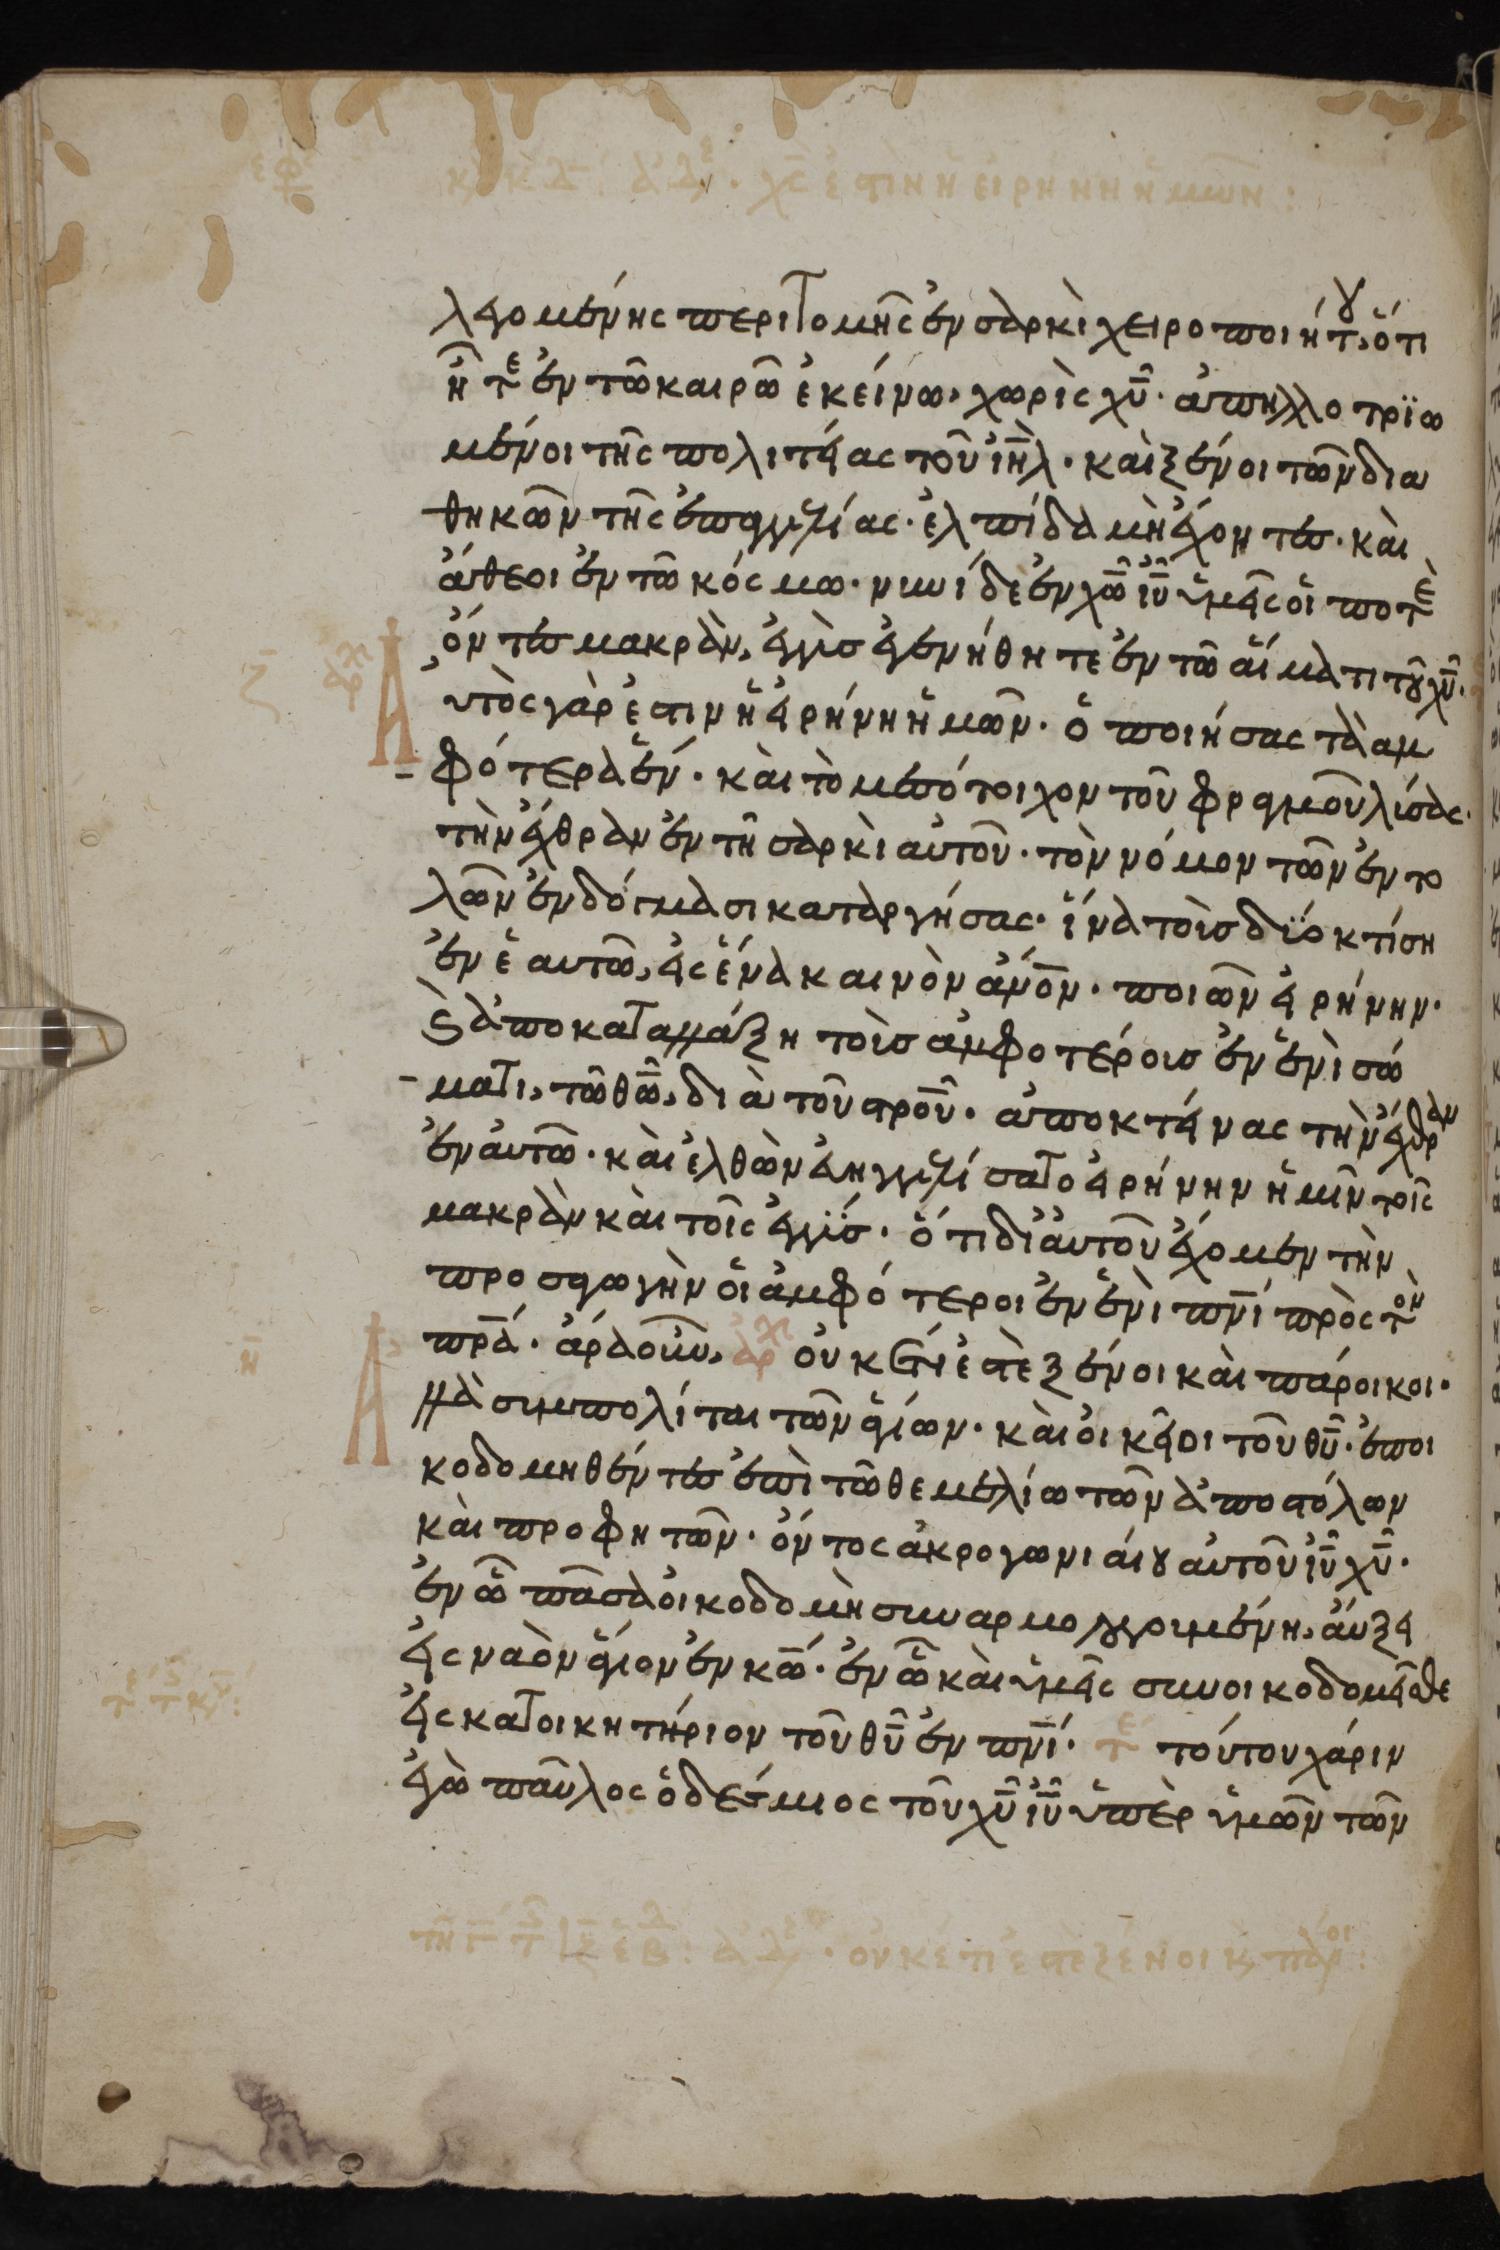 κυ κδ: ἀδελ. χς ἐστὶν ἡ εἰρήνη ἡμῶν:
λεγομένης περιτομῆς ἐν σαρκὶ χειροποιήτου, ὅτι
ἦτε ἐν τῶ καιρῶ ἐκείνω, χωρὶς χῦ. ἀπηλλοτριω
μένοι τῆς πολιτείας τοῦ ἰηλ. καὶ ξένοι τῶν δια
θηκῶν τῆς ἐπαγγελίας. ἐλπίδα μὴ ἔχοντες. καὶ
ἄθεοι ἐν τῶ κόσμω. νυνὶ δὲ ἐν χω ιυ ὑμεῖς οἵ ποτὲ
ὄντες μακρὰν, ἐγγὺς ἐγενήθητε ἐν τῶ αἵματι τοῦ χῦ.
Α
υτὸς γάρ ἐστιν ἡ εἰρήνη ἡμῶν. ὁ ποιήσας τὰ ἀμ
φότερα ἕν. καὶ τὸ μεσότοιχον τοῦ φραγμοῦ λύσας.
τὴν ἔχθραν ἐν τῆ σαρκὶ αὐτοῦ. τὸν νόμον τῶν ἐντο
λῶν ἐν δόγμασι καταργήσας. ἵνα τοὺς δύο κτίση
ἐν ἑαυτῶ, εἰς ἕνα καινὸν ἄνον. ποιῶν εἰρήνην.
καὶ ἀποκαταλλάξη τοὺς ἀμφοτέρους ἐν ἑνὶ σώ
ματι, τῶ θω, διὰ τοῦ στρου. ἀποκτείνας τὴν ἔχθραν
ἐν αὐτῶ. καὶ ἐλθὼν εὐηγγελίσατο εἰρήνην ἡμῖν τοῖς
μακρὰν καὶ τοῖς ἐγγύς. ὅτι δι αὐτοῦ ἔχομεν τὴν
προσαγωγὴν οἱ ἀμφότεροι ἐν ἑνὶ πνι πρὸς τὸν
πρα. ἄρα οὖν, ἀρχ οὐκέτι ἐστὲ ξένοι καὶ πάροικοι.
Α
λλὰ συμπολίται τῶν ἁγίων. καὶ οἰκεῖοι τοῦ θυ. ἐποι
κοδομηθέντες ἐπὶ τῶ θεμελίω τῶν ἀποστόλων
καὶ προφητῶν. ὄντος ἀκρογωνιαίου αὐτοῦ ιυ χυ.
ἐν ὧ πᾶσα οἰκοδομὴ συναρμολογουμένη, αὔξει
εἰς ναὸν ἅγιον ἐν κω. ἐν ὧ καὶ ὑμεῖς συνοικοδομεῖσθε
εἰς κατοικητήριον τοῦ θυ ἐν πνι. τε τούτου χάριν
ἐγὼ παῦλος ὁ δέσμιος τοῦ χυ ιυ ὑπὲρ ὑμῶν τῶν
οὐκέτι ἐστὲ ξένοι κ παροι: